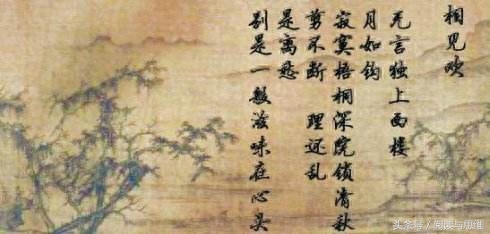 相见欢
无言独上西楼
月如钩
寂寞梧桐深院锁清秋
剪不断 理还乱
是离愁
别是一般滋味在心头
头条号 /